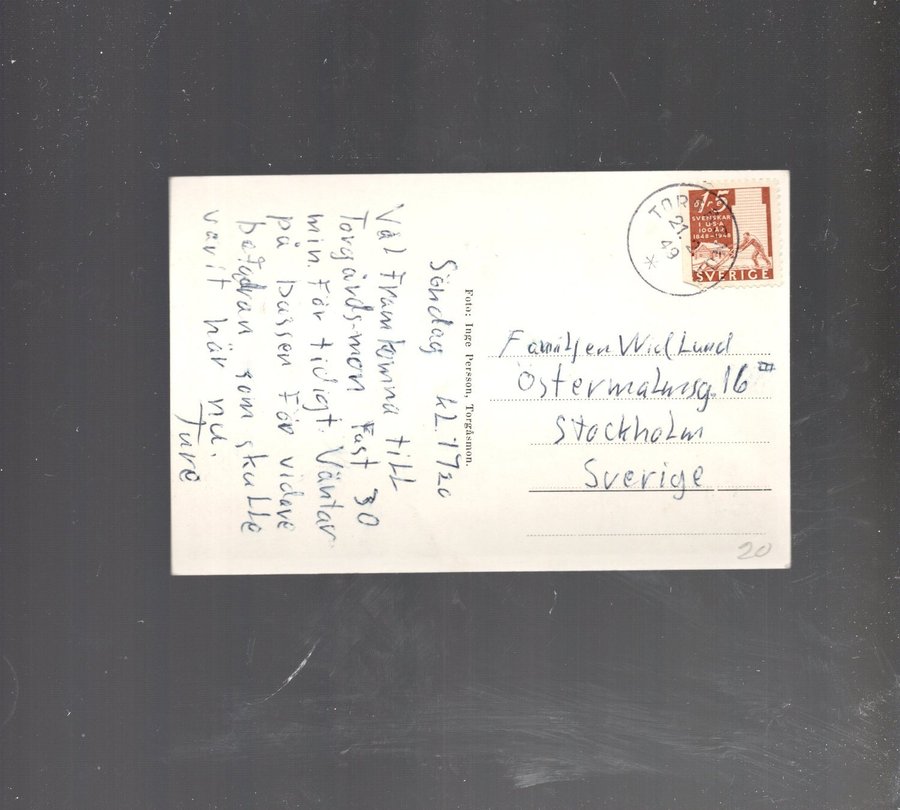 Söndag kl. 1720
Väl framkomna till
Torgårds-mon fast 30
min för tidigt. Väntar
på bussen för vidare
som skulle
varit här nu.
Ture
Foto: Inge Persson, Torgåsmon.
15
öre
SVENSKAR
I USA
100 ÅR
1848-1948
SVERIGE
21. 2
49
Familjen Widlund
Östermalmsg. 16 III
Stockholm
Sverige
20